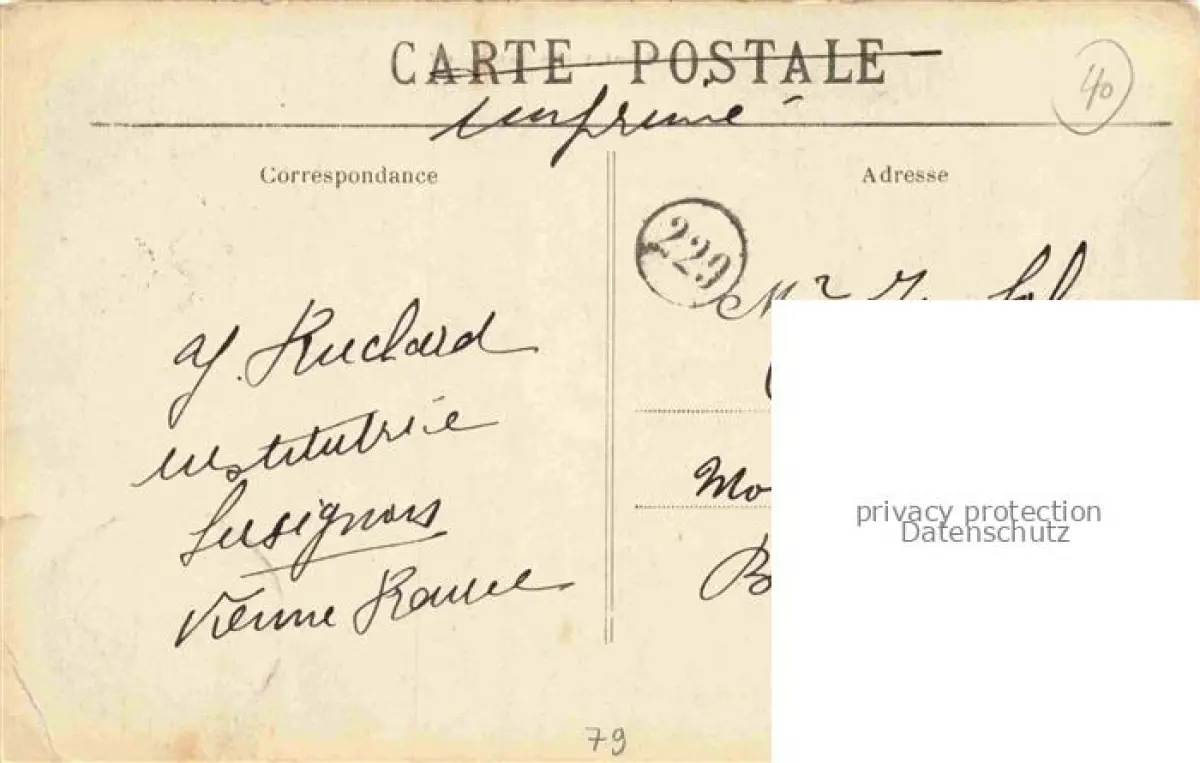 CARTE POSTALE
imprimé
40
Correspondance
Adresse
229
Mr
Ruchard
institutrice
Lusignan
Vienne France
Mo
B
privacy protection
Datenschutz
79